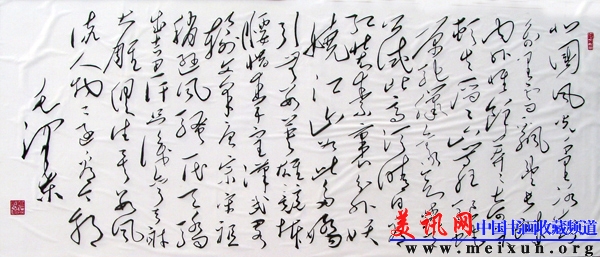 北国风光千里冰封
万里雪飘望长城
内外惟余莽莽大河上下
顿失滔滔山舞银蛇
原驰蜡象欲与天
公试比高须晴日看
红装素裹分外妖
娆江山如此多娇
引无数英雄竞折
腰惜秦皇汉武略
输文采唐宗宋祖
稍逊风骚一代天骄
成吉思汗只识弯弓射
大雕俱往矣数风
流人物还看今朝
毛泽东
美讯网 中国书画收藏频道
www.meixun.org